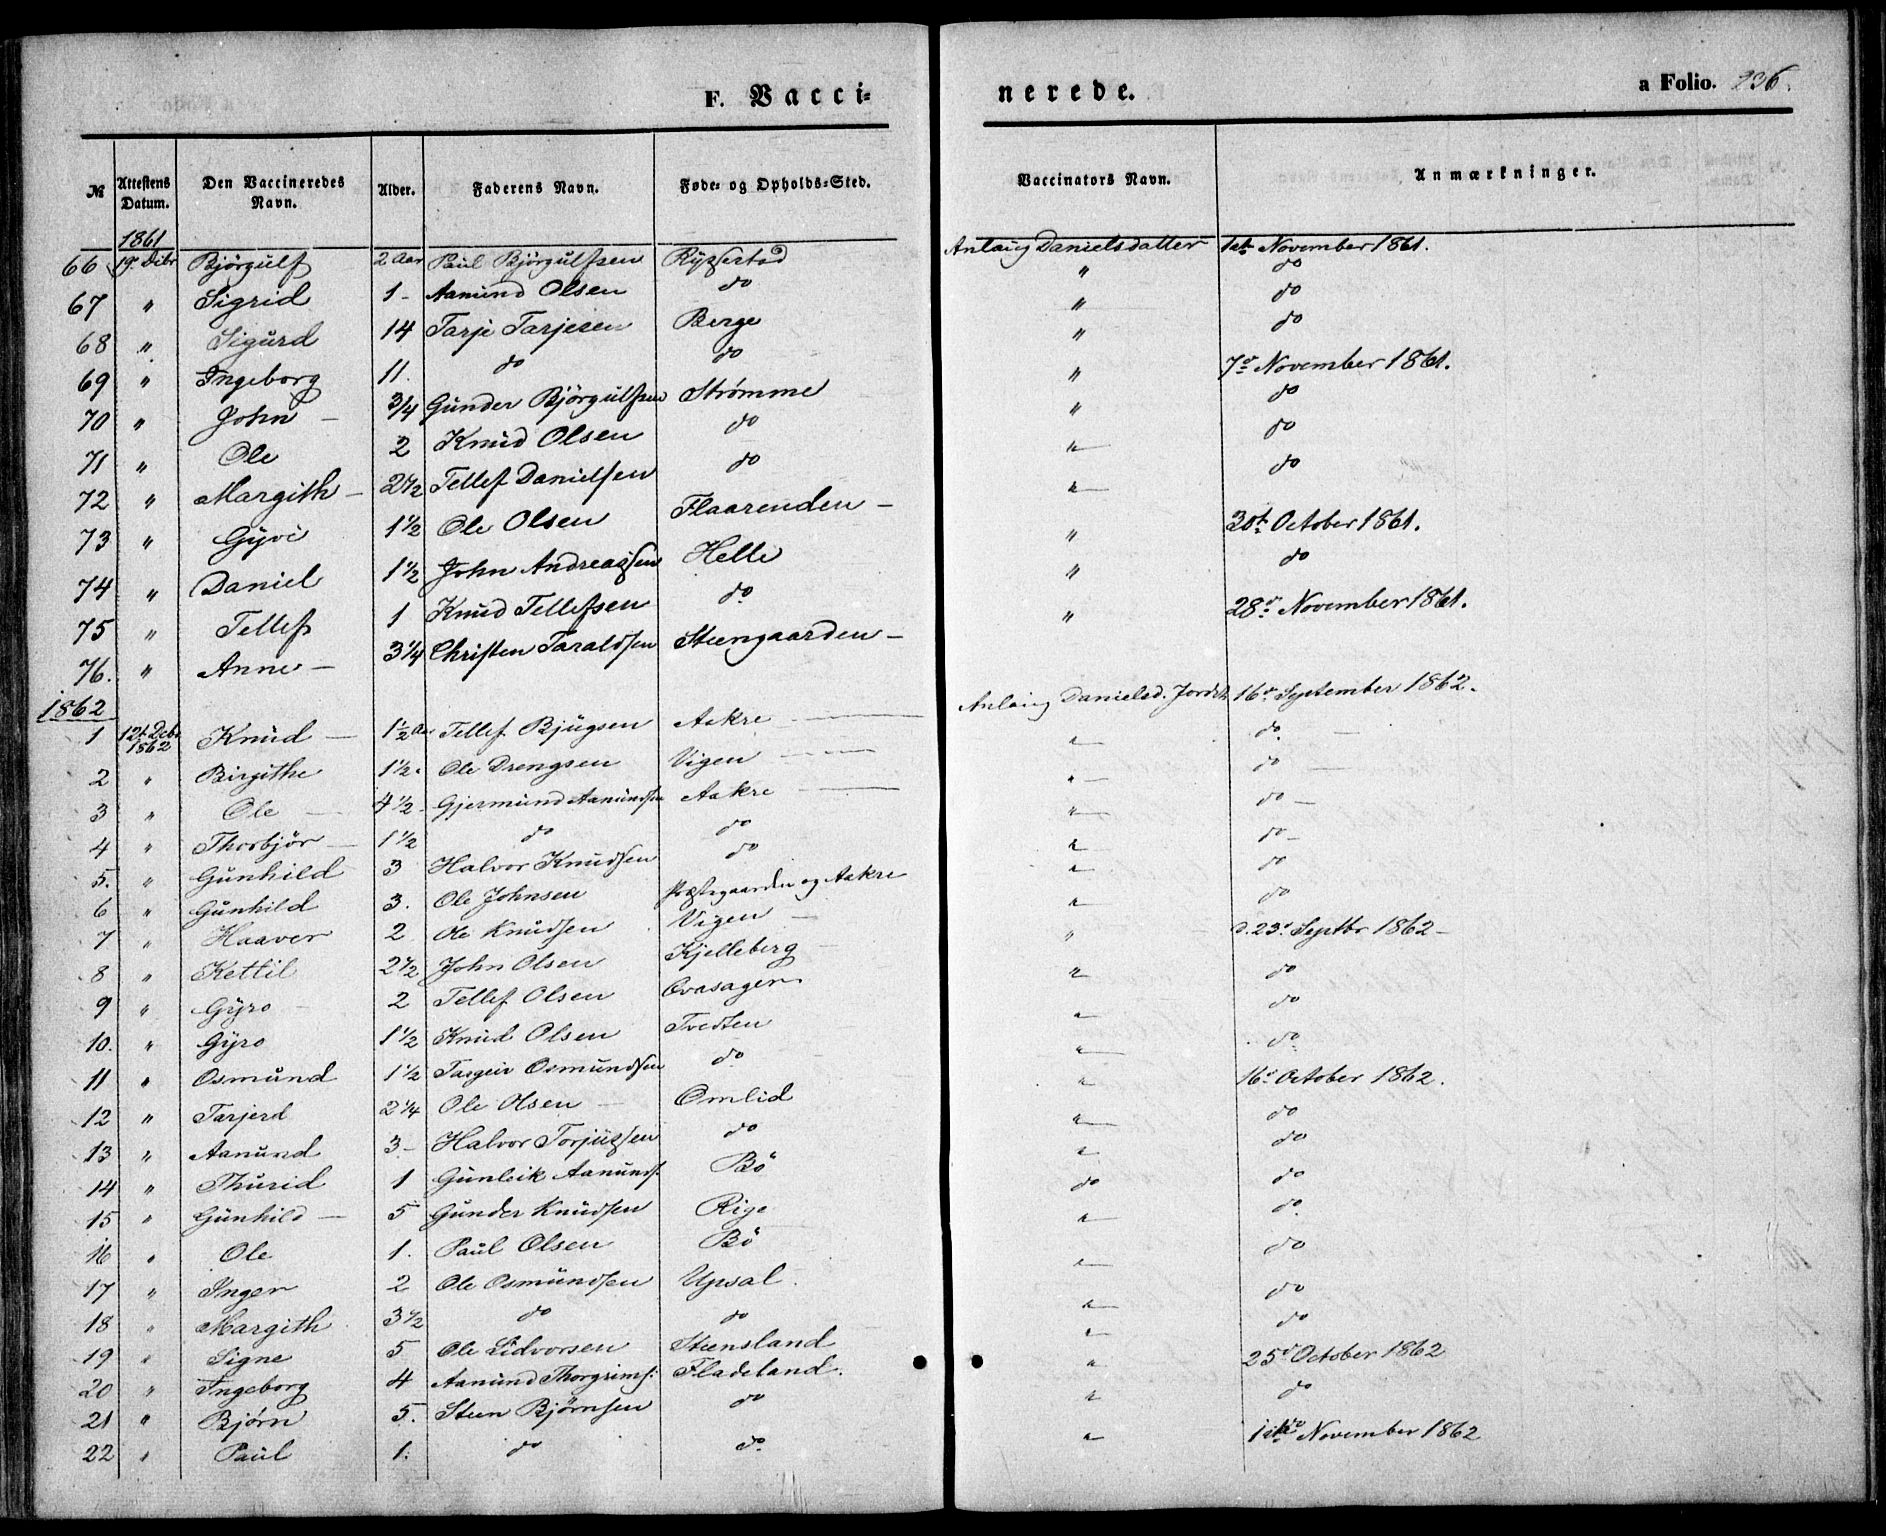 F. Vacci-
nerede.
a Folio. 236.
№ | Attestens Datum. | Den Vaccineredes Navn. | Alder. | Faderens Navn. | Føde- og Opholds-Sted. | Vaccinators Navn. | Anmærkninger.
1861
66 | 19de Dcbr | Bjørgulf | 2 Aar | Paul Bjørgulfsen | Rysestad | Anlaug Danielsdatter | 1ste November 1861.
67 | " | Sigrid | 1 - | Aamund Olsen | do | " | do
68 | " | Sigurd | 14 | Tarje Tarjesen | Berge | " | do
69 | " | Ingeborg | 11. | do | do | " | do
70 | " | John - | 3/4 | Gunder Bjørgulfsen | Strømme | " | 7de November 1861.
71 | " | Ole | 2 | Knud Olsen | do | " | do
72 | " | Margith - | 2 1/2 | Tellef Danielsen | do | " | do
73 | " | Gyvi | 1 1/2 | Ole Olsen | Flaarenden - | " | do
74 | " | Daniel | 1 1/2 | John Andreassen | Helle | " | 30te October 1861.
75 | " | Tellef | 1 | Knud Tellefsen | do | " | do
76. | " | Anne - | 3 1/4 | Christen Taraldsen | Steengaarden - | " | 28de November 1861.
1862
1 | 12te Dcbr 1862 | Knud - | 1 1/2 Aar | Tellef Bjugsen | Aakre - | Anlaug Danielsd. | 16de September 1862.
2 | " | Birgithe | 1 1/2. | Ole Drengsen | Vigen - | " | do.
3 | " | Ole - | 4 1/2 | Gjermund Aamundsen | Aakre - | " | do
4 | " | Thorbjør - | 1 1/2 | do | do | " | do -
5. | " | Gunhild | 3 | Halvor Knudsen | do | " | do -
6 | " | Gunhild | 3. | Ole Johnsen | Præstegaarden og Aakre | " | do
7 | " | Haaver | 2 | Ole Knudsen | Vigen - | " | do
8 | " | Kettil | 2 1/2 | John Olsen | Kjelleberg - | " | d. 23de Septbr 1862 -
9 | " | Gyro - | 2 | Tellef Olsen | | " | do
10. | " | Gyro | 1 1/2 | Knud Olsen | Tvedten | " | do
11 | " | Osmund | 1 1/2 | Targeir Osmundsen | do | " | do
12 | " | Tarjerd | 2 1/4 | Ole Olsen - | Omlid | " | 16de October 1862.
13 | " | Aanund | 3 - | Halvor Torjussen | do | " | do
14 | " | Thurid | 1 | Gunleik Aanunds. | Bö | do | do
15 | " | Gunhild - | 5 | Gunder Knudsen | Rige | " | do
16 | " | Ole | 1. | Paul Olsen | Bö | " | do.
17 | " | Inger | 2 | Ole Osmundsen | Upsal. | " | do
18 | " | Margith | 3 1/2 | do | do | " | do
19 | " | Signe | 5 | Ole Lidvorsen | Steensland | " | do
20 | " | Ingeborg | 4 | Aanund Thorgrims: | Fladeland. | " | 25de October 1862
21 | " | Bjørn | 5. | Steen Bjørnsen | do | " | do
22 | " | Paul | 1. | do | do. | " | 1ste November 1862